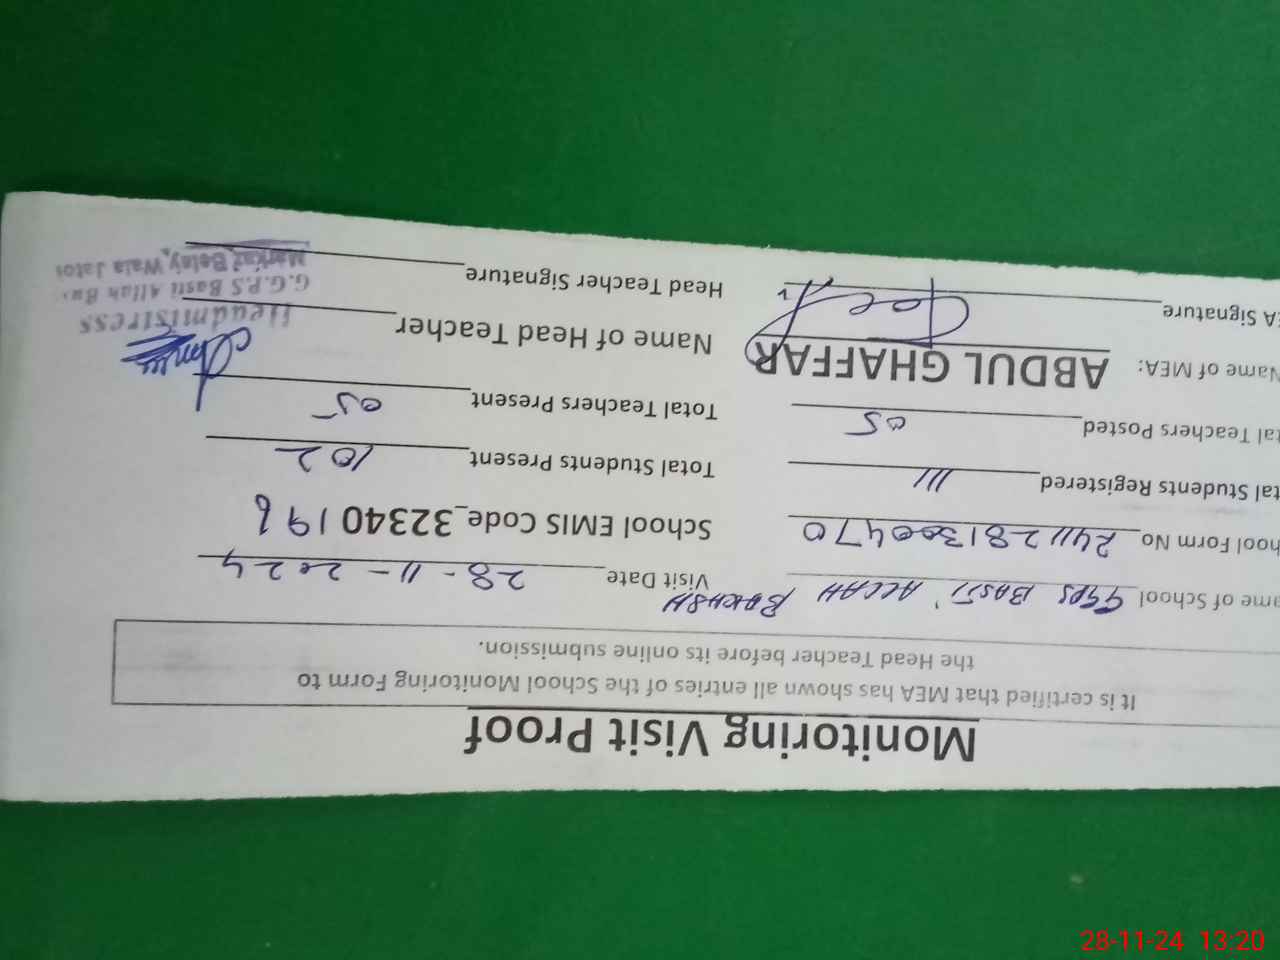 Monitoring Visit Proof
It is certified that MEA has shown all entries of the School Monitoring Form to
the Head Teacher before its online submission.
ame of School GGPS BASTI ALLAH BAKHSH Visit Date 28-11-2024
hool Form No 2411281300470 School EMIS Code_32340198
tal Students Registered 111 Total Students Present 102
tal Teachers Posted 05 Total Teachers Present 05
Name of MEA: ABDUL GHAFFAR Name of Head Teacher
EA Signature Head Teacher Signature
Headmistress
G.G.P.S Basti Allah Bu
Markaz Betay Wala Jatoi
28-11-24 13:20